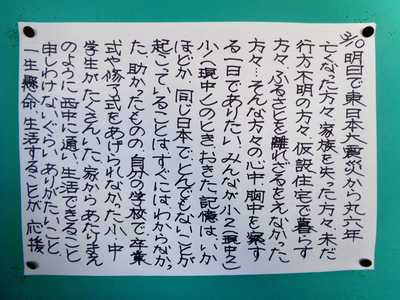 3/10 明日で東日本大震災から丸六年
亡くなった方々、家族を失った方々、未だ
行方不明の方々、仮設住宅で暮らす
方々、ふるさとを離れざるをえなかった
方々…そんな方々の心中、胸中を察す
る一日でありたい。みんなが小2(現中2)
小1(現中1)のとき、おきた記憶は、いか
ほどか。同じ日本でとんでもないことが
起こっていることは、すぐにはわからなかっ
た。助かったものの、自分の学校で卒業
式や修了式をあげられなかった小、中
学生がたくさんいた。家からあたりまえ
のように西中に通い、生活できること
申しわけないぐらいありがたいこと、
一生懸命生活することが応援